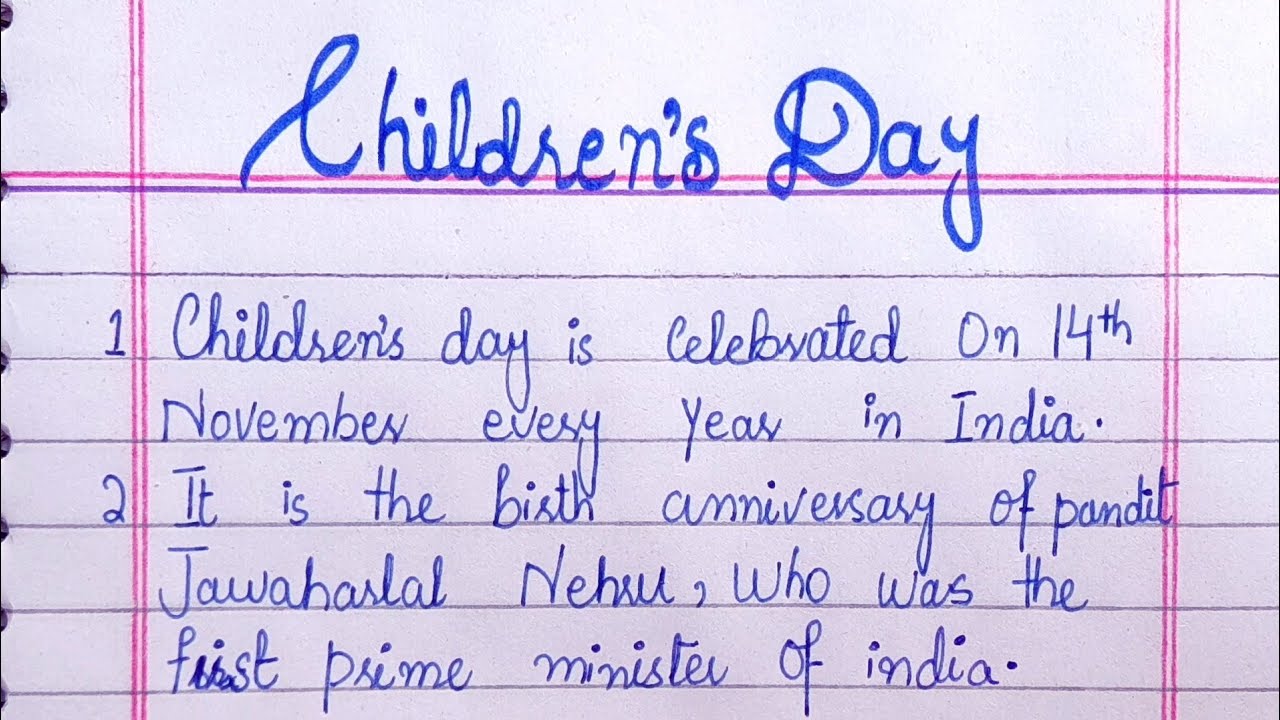 Children's Day
1 Children's day is celebrated On 14th
November every year in India.
2 It is the birth anniversary of pandit
Jawaharlal Nehru, Who was the
first prime minister of india.